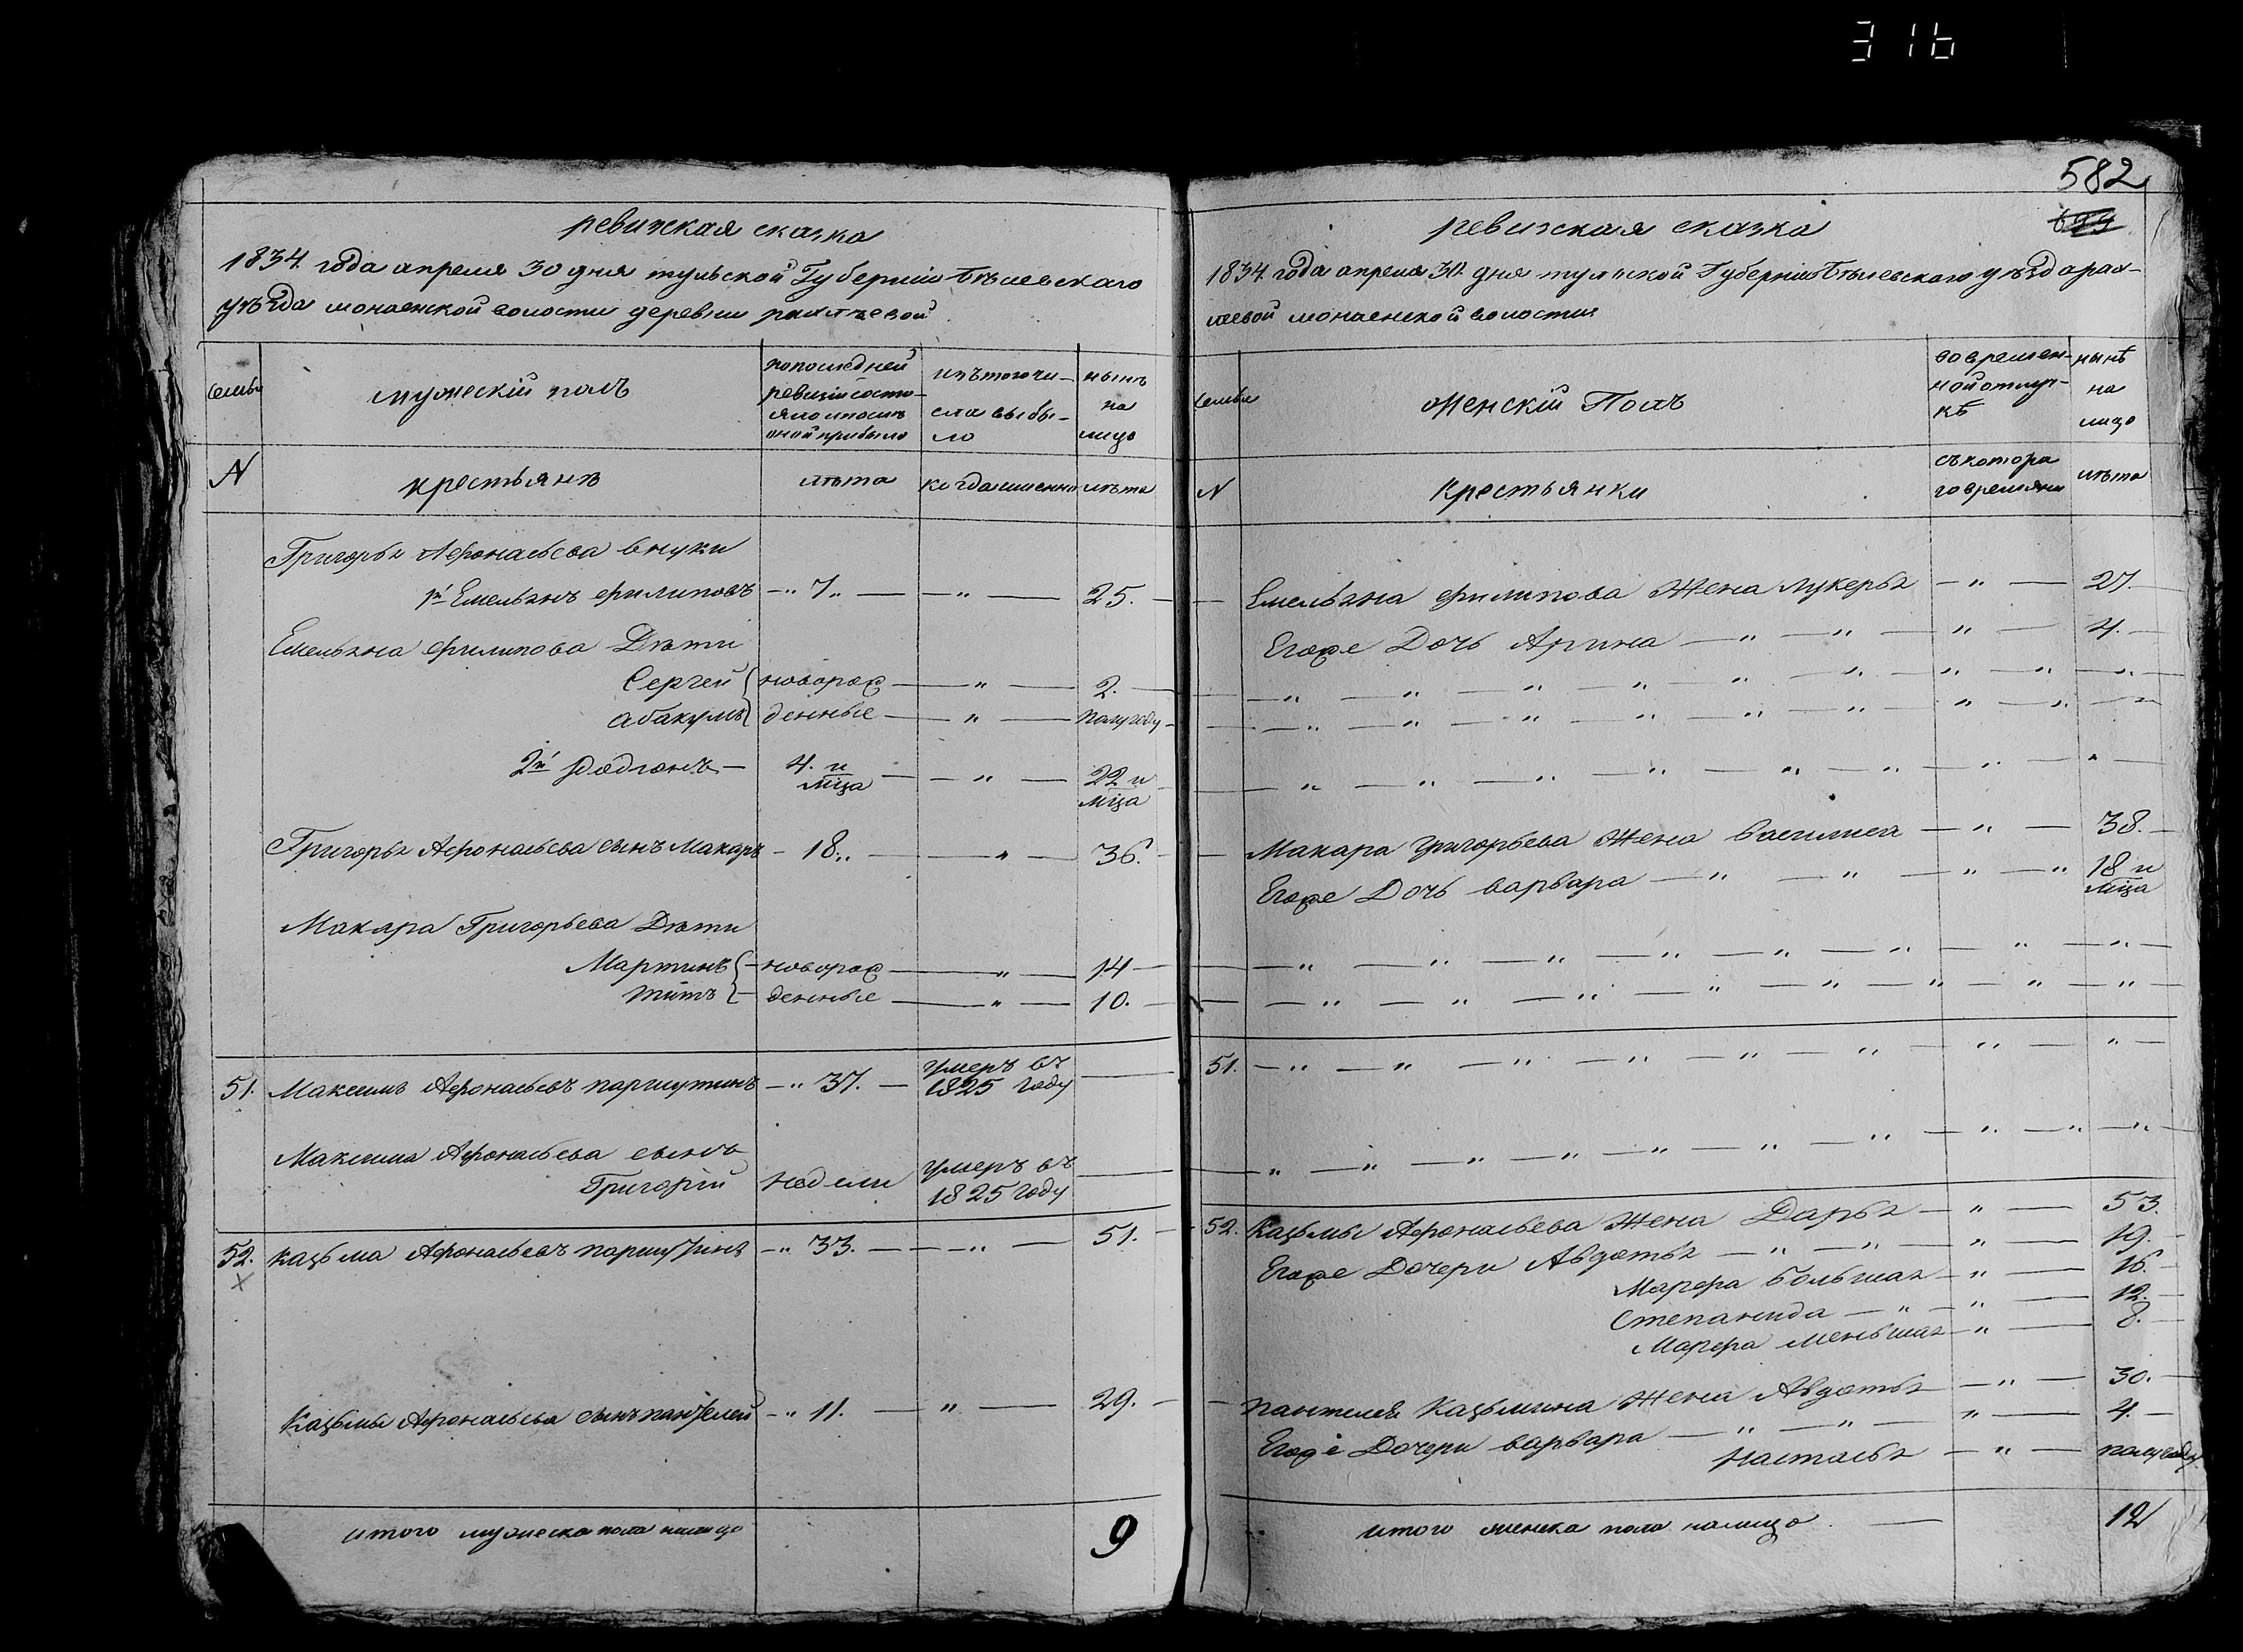 316
ревижская сказка
1834. года апреля 30 дня тульской Губерніи Бѣлевскаго
уѣзда монаенской волости деревни рахлѣевой
семьи
мужескій полъ
попоследней
ревизіи состо-
яло ипосли
оной прибыло
изътогочи-
сла выбы-
ло
нынѣ
на
лицо
N
крестьянъ
лѣта
когдаименно
лѣта
Григорья Афонасьева внуки
1й Емельянъ филиповъ — 7 — 25.
Емельяна филипова Дѣти
Сергей новорож — " — 2.
абакумъ денные — " — полугоду
2й Родіонъ — 4. и мца — " — 22 и мца
Григорья Афонасьева сынъ Макаръ — 18 — " — 36.
Макара Григорьева Дѣти
Мартинъ новорож — " — 14
титъ денные — " — 10.
51. Максимъ Афонасьевъ паршутинъ — " 37. — умеръ въ 1825 году
Максима Афонасьева сынъ
Григорій недели умеръ въ 1825 году
52. казьма Афонасьевъ паршутинъ — " 33. — " — 51.
Казьмы Афонасьева сынъ пантелей — " 11. — " — 29.
итого мужеска пола налицо 9
582
699
ревижская сказка
1834 года апреля 30. дня тульской Губерніи Бѣлевскаго уѣзда рах-
леевой монаенской волости
семьи
женскій Полъ
вовремен-
ной отлуч-
кѣ
нынѣ
на
лицо
N
Крестьянки
съкотора
го времяни
лѣта
Емельяна филипова Жена лукерья — " — 27.
Егоже Дочь Арина — " — " — " — 4.
Макара григорьева Жена Василиса — " — 38.
Егоже Дочь варвара — " — " — " — 18 и мца
51.
52. Казьмы Афонасьева Жена Дарья — " — 53.
Егоже Дочери Авдотья — " — " — " — 19.
Марфа большая — " — 16.
Степанида — " — " — 12.
Марфа меньшая — " — 8.
пантелея Казьмина Жена Авдотья — " — 30.
Егоже Дочери варвара — " — " — " — 4.
Настасья — " — полугоду
итого женска пола налицо — 12